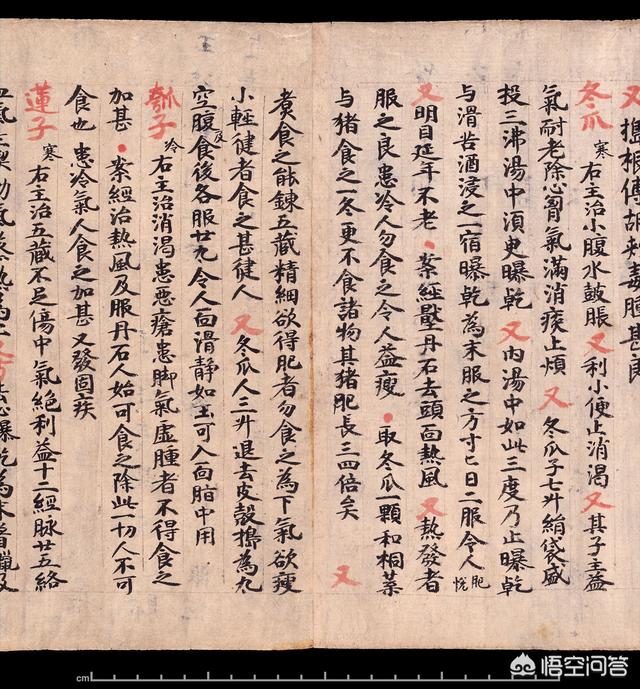 冬瓜 寒 右主治小腹水鼓脹 又 利小便止消渴 又 其子主益
氣耐老除心胷氣滿消痰止煩 又 冬瓜子七升絹袋盛
投三沸湯中須臾曝乾 又 內湯中如此三度乃止曝乾
与滑苦酒浸之一宿曝乾為末服之方寸匕日二服令人肥悅
又 明目延年不老 · 案經壓丹石去頭面熱風 又 熱發者
服之良患冷人勿食之令人益瘦 · 取冬瓜一顆和桐葉
与猪食之一冬更不食諸物其猪肥長三四倍矣 又
煮食之能鍊五藏精細欲得肥者勿食之為下氣欲瘦
小輕健者食之甚健人 又 冬瓜人三升退去皮殼擣為丸
空腹及食後各服廿丸令人面滑静如玉可入面脂中用
瓠子 冷 右主治消渴患惡瘡患脚氣虛腫者不得食之
加甚 · 案經治熱風及服丹石人始可食之除此一切人不可
食也 患冷氣人食之加甚 又發固疾
蓮子 寒 右主治五藏不足傷中氣絕利益十二經脉廿五絡
cm
悟空问答